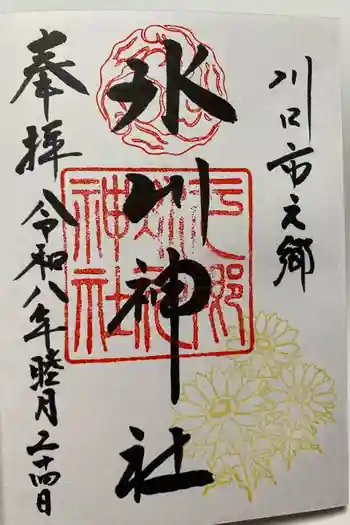 川口市元郷
氷川神社
元郷氷川神社
奉拝
令和八年睦月二十四日